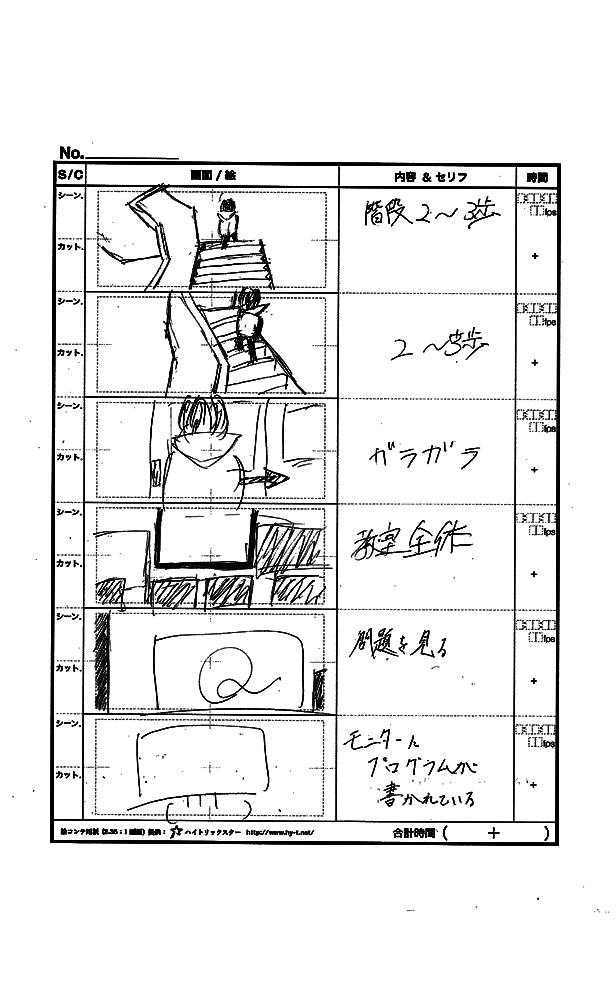 No.
S/C 画面 / 絵 内容 & セリフ 時間
シーン.
カット.
階段 2〜3歩
fps
+
シーン.
カット.
2〜3歩
fps
+
シーン.
カット.
ガラガラ
fps
+
シーン.
カット.
教室全体
fps
+
シーン.
カット.
Q
問題を見る
fps
+
シーン.
カット.
モニターに
プログラムが
書かれている
fps
+
絵コンテ用紙 (2.35:1 画面) 提供: ハイトリックスター http://www.hy-t.net/ 合計時間 ( + )